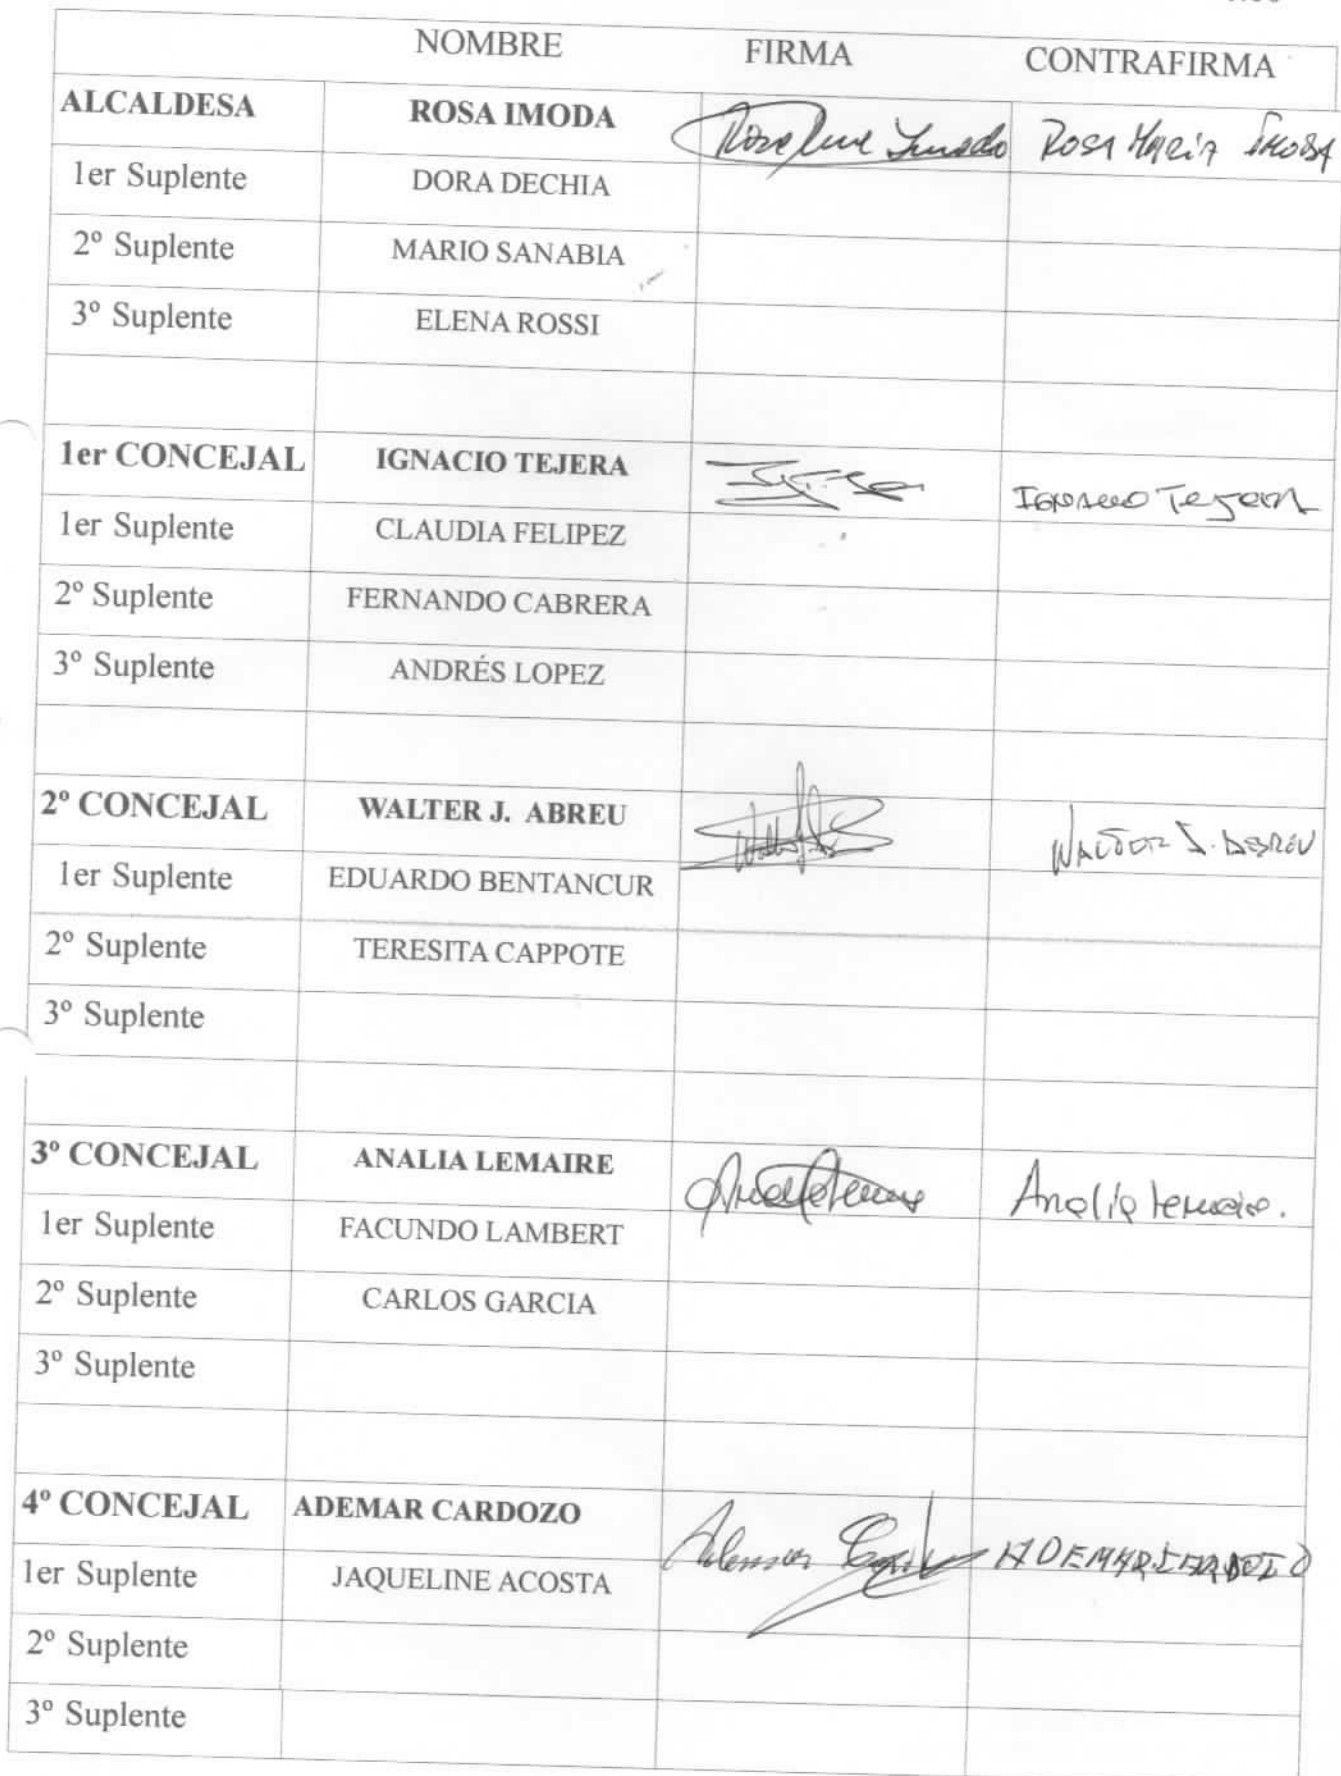 NOMBRE FIRMA CONTRAFIRMA
ALCALDESA ROSA IMODA Rosa Imoda ROSA MARIA IMODA
1er Suplente DORA DECHIA
2º Suplente MARIO SANABIA
3º Suplente ELENA ROSSI
1er CONCEJAL IGNACIO TEJERA IGNACIO TEJERA
1er Suplente CLAUDIA FELIPEZ
2º Suplente FERNANDO CABRERA
3º Suplente ANDRÉS LOPEZ
2º CONCEJAL WALTER J. ABREU WALTER J. ABREU
1er Suplente EDUARDO BENTANCUR
2º Suplente TERESITA CAPPOTE
3º Suplente
3º CONCEJAL ANALIA LEMAIRE Analia Lemaire.
1er Suplente FACUNDO LAMBERT
2º Suplente CARLOS GARCIA
3º Suplente
4º CONCEJAL ADEMAR CARDOZO Ademar ADEMAR CARDOZO
1er Suplente JAQUELINE ACOSTA
2º Suplente
3º Suplente